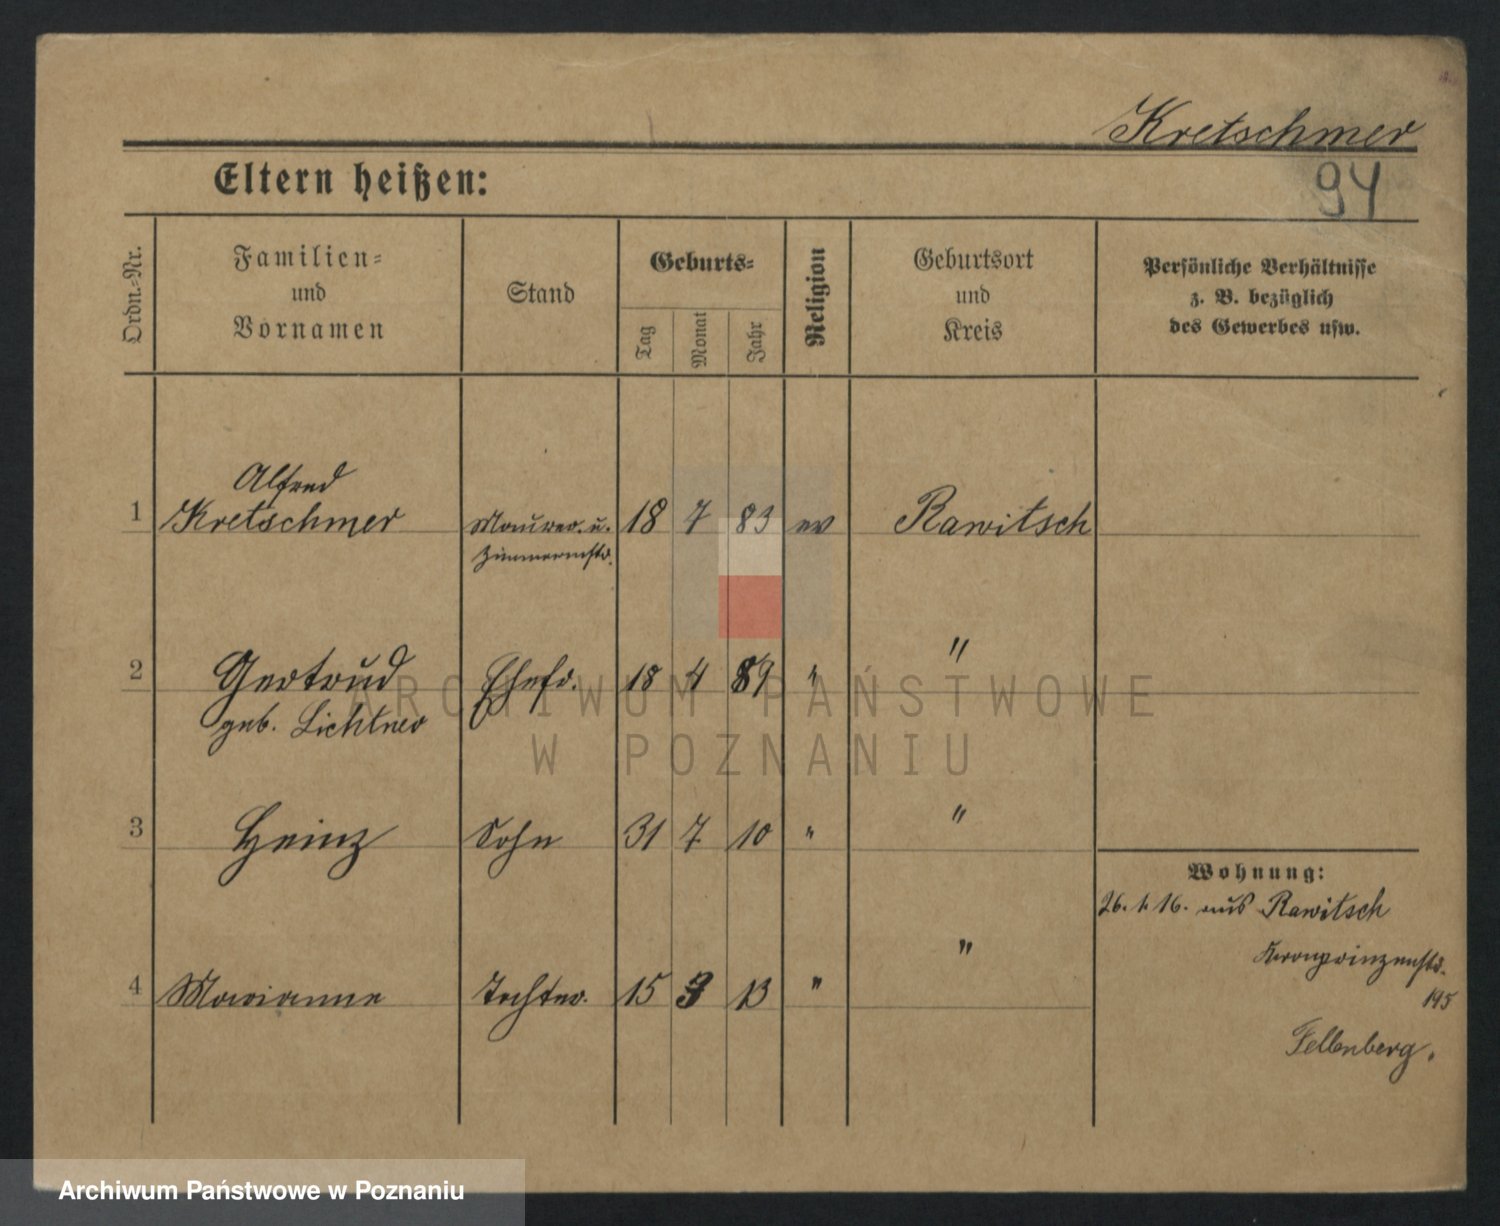 Kretschmer
94
Eltern heißen:
Ordn.-Nr.
Familien-
und
Vornamen
Stand
Geburts-
Tag
Monat
Jahr
Religion
Geburtsort
und
Kreis
Persönliche Verhältnisse
z. B. bezüglich
des Gewerbes usw.
Alfred
1 Kretschmer Maurer- u. 18 7 83 ev Rawitsch
Zimmermstr.
2 Gertrud Ehefr. 18 4 89 " "
geb. Lichtner
3 Heinz Sohn 31 7 10 " "
Wohnung:
26. 1. 16. aus Rawitsch
Kronprinzenstr.
195
4 Marianne Tochter. 15 3 13 " "
Fellenberg.
ARCHIWUM PAŃSTWOWE
W POZNANIU
Archiwum Państwowe w Poznaniu